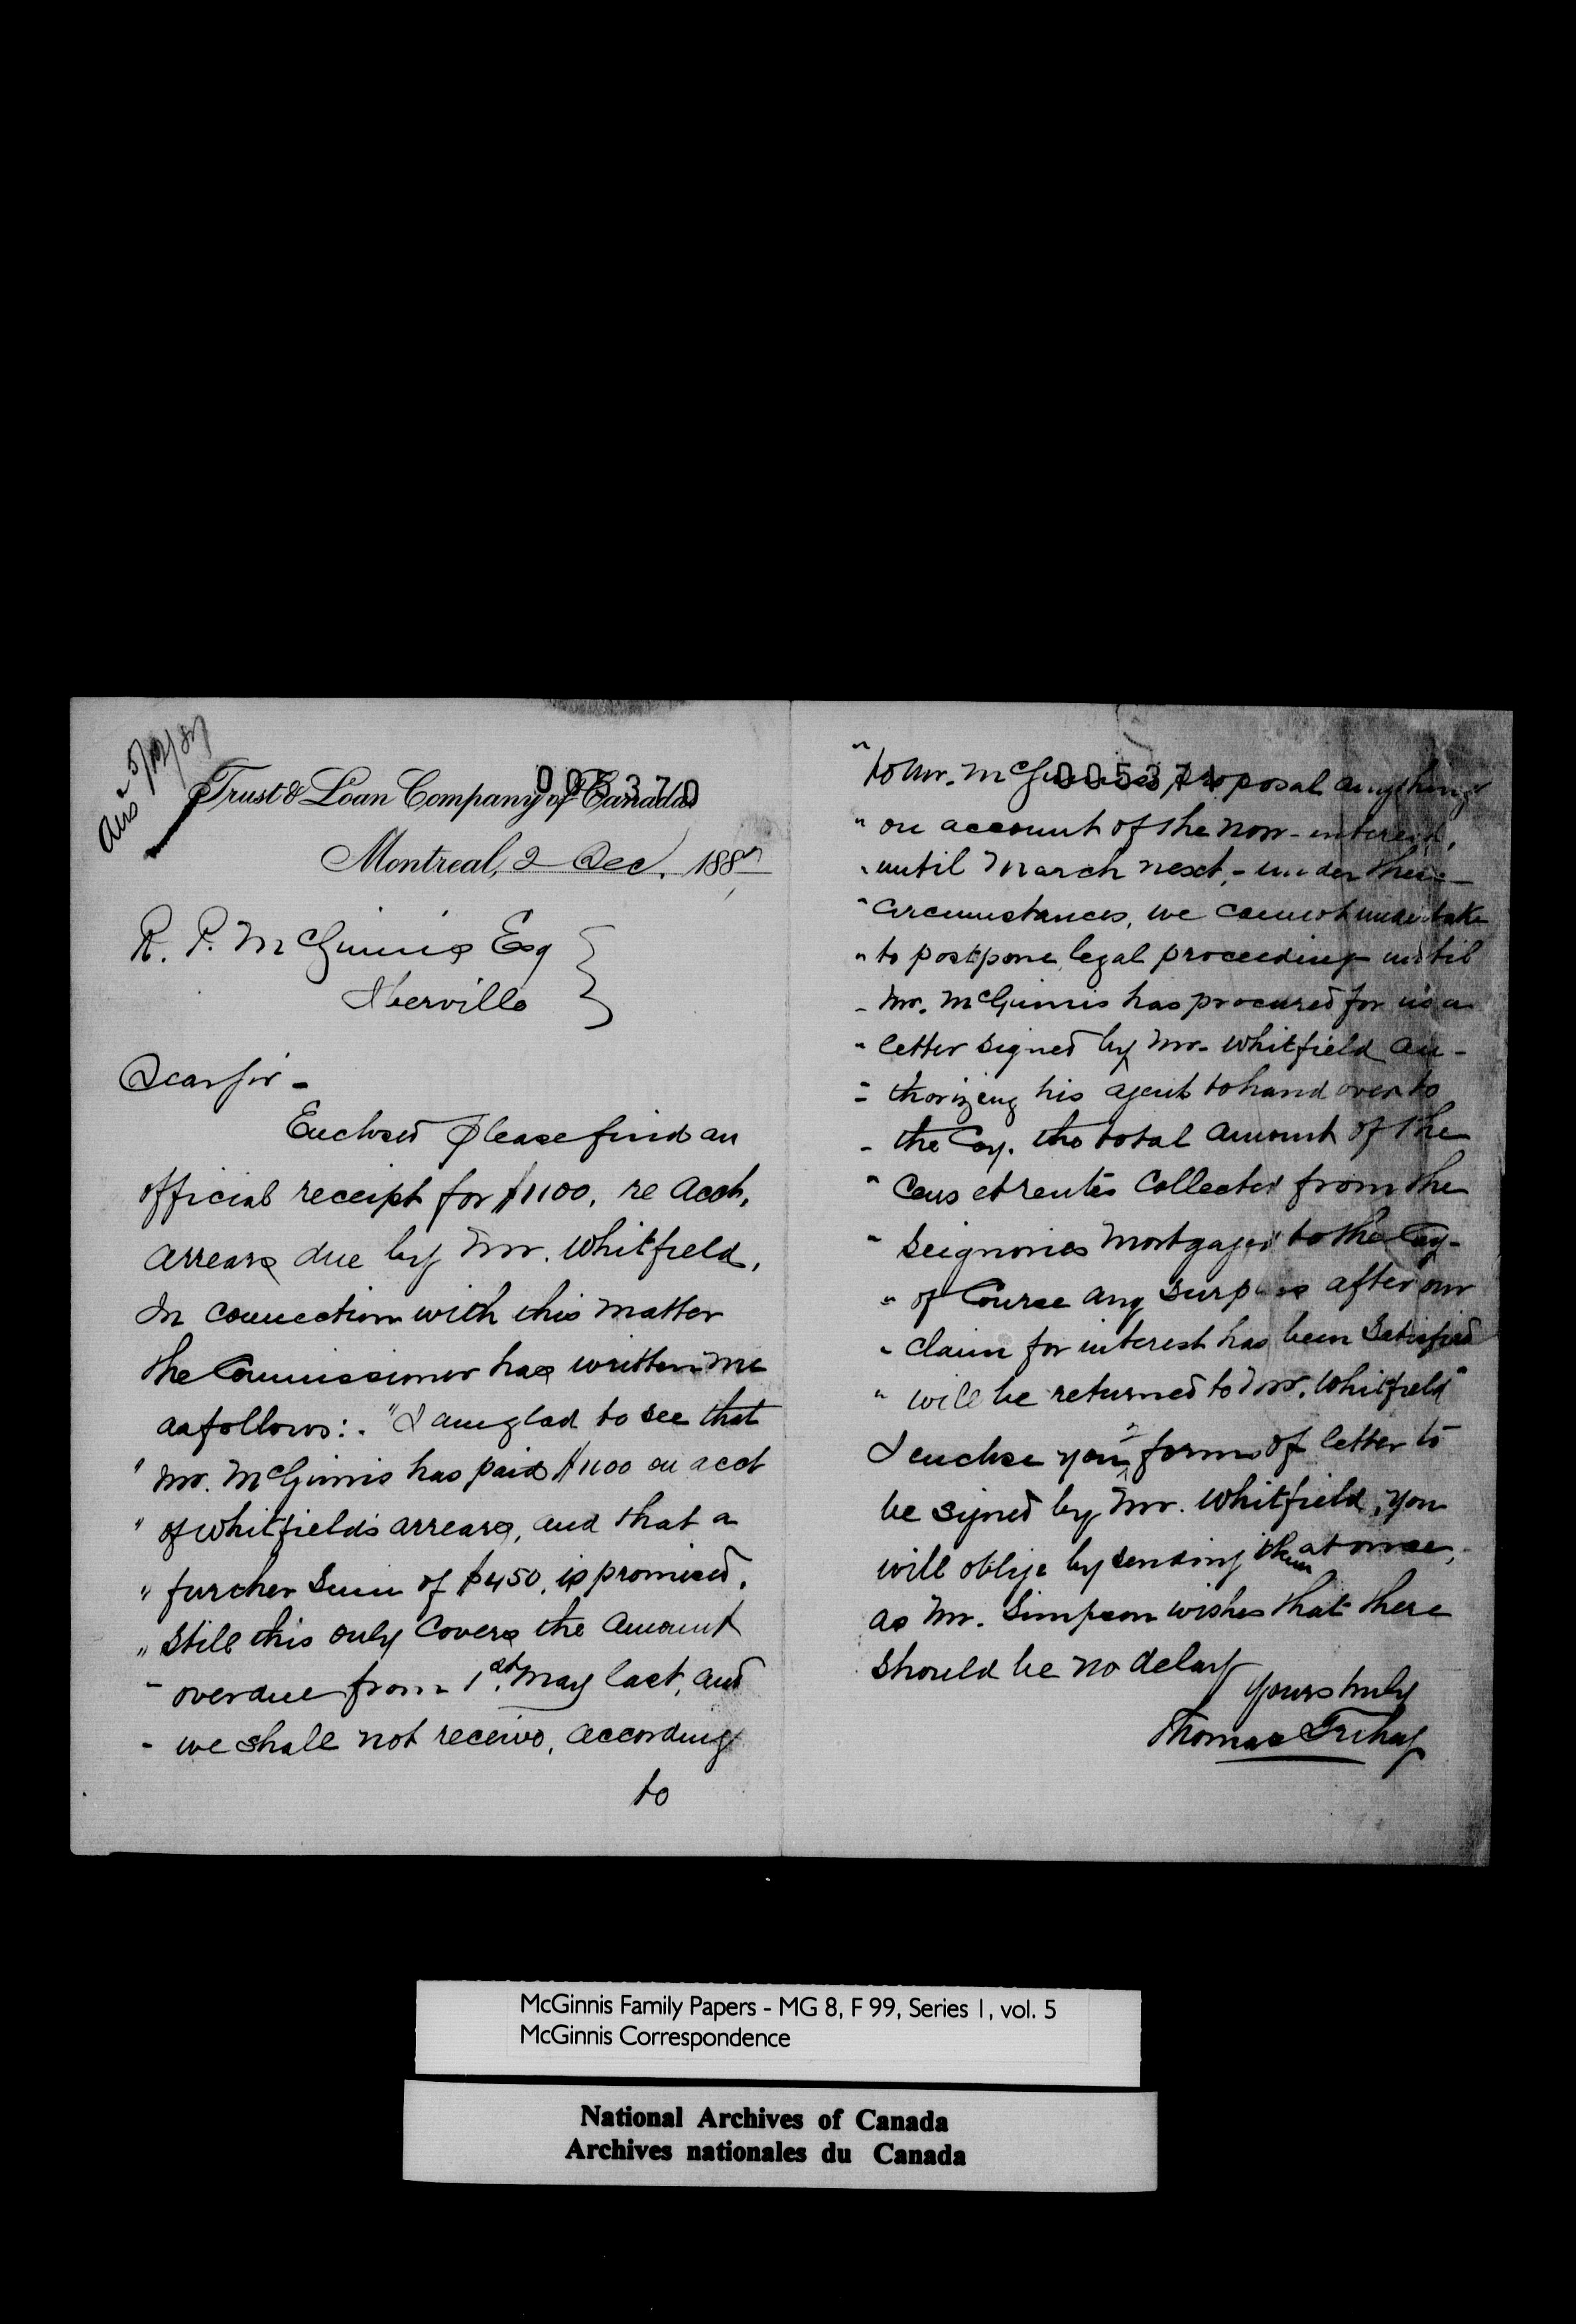 Ansd 5/12/87
005370
Trust & Loan Company of Canada
Montreal, 2 Dec. 1887
R. P. McGinnis Esq
Iberville
Dear Sir -
Enclosed please find an
official receipt for $1100, re Acct,
arrears due by Mr. Whitfield,
In connection with this matter
the Commissioner has written me
as follows:. "I am glad to see that
" Mr. McGinnis has paid $1100 on acct
" of Whitfield's arrears, and that a
" further sum of $450, is promised.
" Still this only covers the amount
" overdue from 1st. May last, and
" we shall not receive, according
to
005371
" to Mr. McGinnis' proposal anything
" on account of the Nov - interest,
" until March next, - under these
" circumstances, we cannot undertake
" to postpone legal proceedings until
" Mr. McGinnis has procured for us a
" letter signed by Mr. Whitfield au -
" thorizing his agent to hand over to
" the Coy. the total amount of the
" Cens et rentes collected from the
" Seigniories mortgaged to the Coy -
" of course any surplus after our
" claim for interest has been satisfied
" will be returned to Mr. Whitfield"
I enclose you 2 forms of letter to
be signed by Mr. Whitfield, you
will oblige by sending them at once,
as Mr. Simpson wishes that there
should be no delay
Yours truly
Thomas Trihey
McGinnis Family Papers - MG 8, F 99, Series 1, vol. 5
McGinnis Correspondence
National Archives of Canada
Archives nationales du Canada